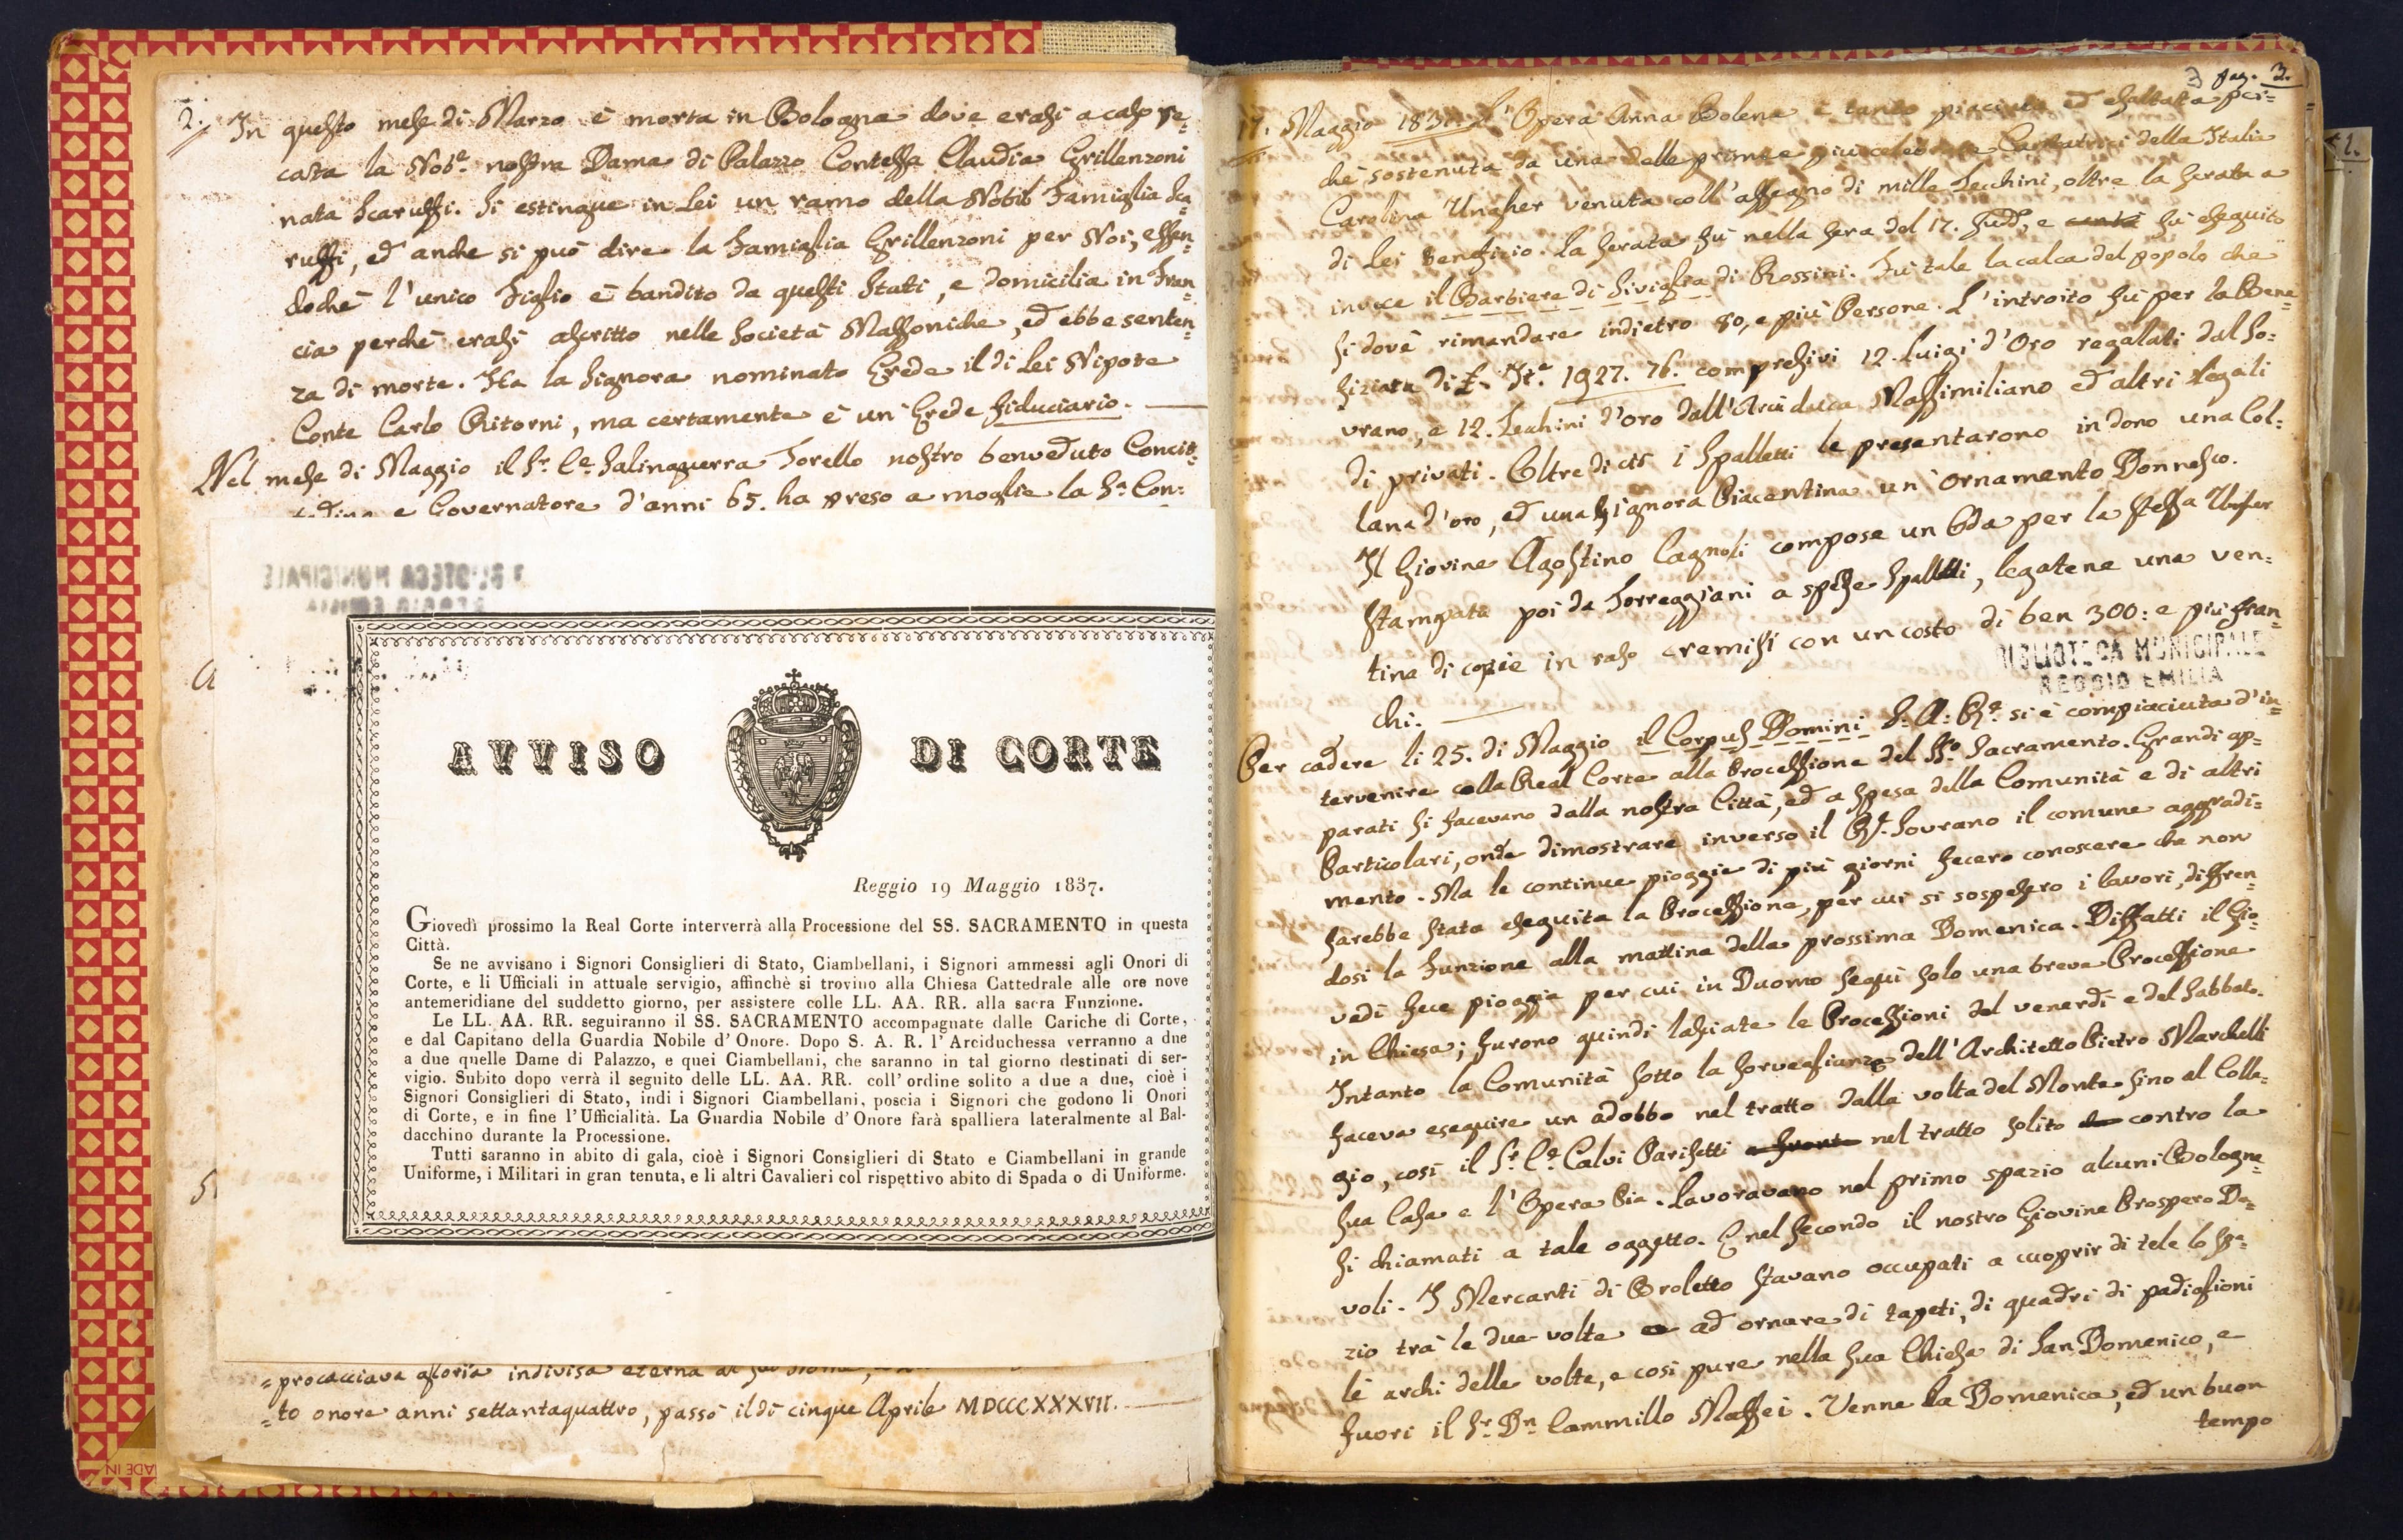 2. In questo mese di Marzo è morta in Bologna dove erasi a caso re=
cata la Nob.e nostra Dama di Palazzo Contessa Claudia Grillenzoni
nata Scaruffi. Si estingue in Lei un ramo della Nobil Famiglia Sca=
ruffi, ed anche si può dire la Famiglia Grillenzoni per Noi, essen=
dochè l'unico Figlio è bandito da questi Stati, e domicilia in Fran=
cia perchè erasi ascritto nelle Società Massoniche, ed ebbe senten=
za di morte. Ha la Signora nominato Erede il di Lei Nipote
Conte Carlo Ritorni, ma certamente è un Erede fiduciario.
Nel mese di Maggio il Sr. Ce. Salinguerra Torello nostro benveduto Concit=
tadino e Governatore d'anni 65. ha preso a moglie la Sa. Con:
BIBLIOTECA MUNICIPALE
REGGIO EMILIA
AVVISO DI CORTE
Reggio 19 Maggio 1837.
Giovedì prossimo la Real Corte interverrà alla Processione del SS. SACRAMENTO in questa
Città.
Se ne avvisano i Signori Consiglieri di Stato, Ciambellani, i Signori ammessi agli Onori di
Corte, e li Ufficiali in attuale servigio, affinchè si trovino alla Chiesa Cattedrale alle ore nove
antemeridiane del suddetto giorno, per assistere colle LL. AA. RR. alla sacra Funzione.
Le LL. AA. RR. seguiranno il SS. SACRAMENTO accompagnate dalle Cariche di Corte,
e dal Capitano della Guardia Nobile d'Onore. Dopo S. A. R. l'Arciduchessa verranno a due
a due quelle Dame di Palazzo, e quei Ciambellani, che saranno in tal giorno destinati di ser-
vigio. Subito dopo verrà il seguito delle LL. AA. RR. coll'ordine solito a due a due, cioè i
Signori Consiglieri di Stato, indi i Signori Ciambellani, poscia i Signori che godono li Onori
di Corte, e in fine l'Ufficialità. La Guardia Nobile d'Onore farà spalliera lateralmente al Bal-
dacchino durante la Processione.
Tutti saranno in abito di gala, cioè i Signori Consiglieri di Stato e Ciambellani in grande
Uniforme, i Militari in gran tenuta, e li altri Cavalieri col rispettivo abito di Spada o di Uniforme.
=procacciava gloria indivisa eterna
=to onore anni settantaquattro, passò il dì cinque Aprile MDCCCXXXVII.
3 pag. 3.
17. Maggio 1837. L'Opera Anna Bolena è tanto piaciuta ed esaltata per=
chè sostenuta da una delle prime e più celebrate Cantatrici della Italia
Carolina Ungher venuta coll'assegno di mille Zecchini, oltre la serata a
di Lei beneficio. La serata fù nella sera del 17. sud., e fù eseguito
invece il Barbiere di Siviglia di Rossini. Fù tale la calca del popolo che
si dovè rimandare indietro 80, e più Persone. L'introito fù per la Bene=
fiziata di £. Ita. 1927. 76. compresivi 12. Luigi d'Oro regalati dal So:
vrano, e 12. Zecchini d'oro dall'Arciduca Massimiliano ed altri Regali
di privati. Oltre di ciò i Spalletti le presentarono in dono una Col:
lana d'oro, ed una Signora Piacentina un ornamento Donnesco.
Il Giovine Agostino Cagnoli compose un Oda per la stessa Ungher
stampata poi da Torreggiani a spese Spalletti, legatene una ven:
tina di copie in raso cremisi con un costo di ben 300: e più fran=
chi.
BIBLIOTECA MUNICIPALE
REGGIO EMILIA
Per cadere li 25. di Maggio il Corpus Domini S. A. Re. si è compiaciuta d'in=
tervenire colla Real Corte alla Processione del SS.o Sacramento. Grandi ap=
parati si facevano dalla nostra Città, ed a spesa della Comunità e di altri
Particolari, onde dimostrare inverso il Rl. Sovrano il comune aggradi=
mento. Ma le continue pioggie di più giorni fecero conoscere che non
sarebbe stata eseguita la Processione, per cui si sospesero i lavori, differen=
dosi la Funzione alla mattina della prossima Domenica. Diffatti il Gio=
vedì fece pioggia per cui in Duomo seguì solo una breve Processione
in Chiesa; furono quindi lasciate le Processioni del venerdì e del Sabbato.
Intanto la Comunità sotto la sorveglianza dell'Architetto Pietro Marchelli
faceva eseguire un adobbo nel tratto dalla volta del Monte fino al Colle=
gio, così il Sr. Ce. Calvi Parisetti a fronte nel tratto solito contro la
sua Casa e l'Opera Pia. Lavoravano nel primo spazio alcuni Bologne=
si chiamati a tale oggetto. E nel secondo il nostro Giovine Prospero Da=
voli. I Mercanti di Broletto stavano occupati a cuoprir di tele lo spa=
zio trà le due volte ad ornare di tapeti, di quadri di padiglioni
lè archi delle volte, e così pure nella sua Chiesa di San Domenico, e
fuori il Sr. Dn. Cammillo Maffei. Venne la Domenica, ed un buon
tempo